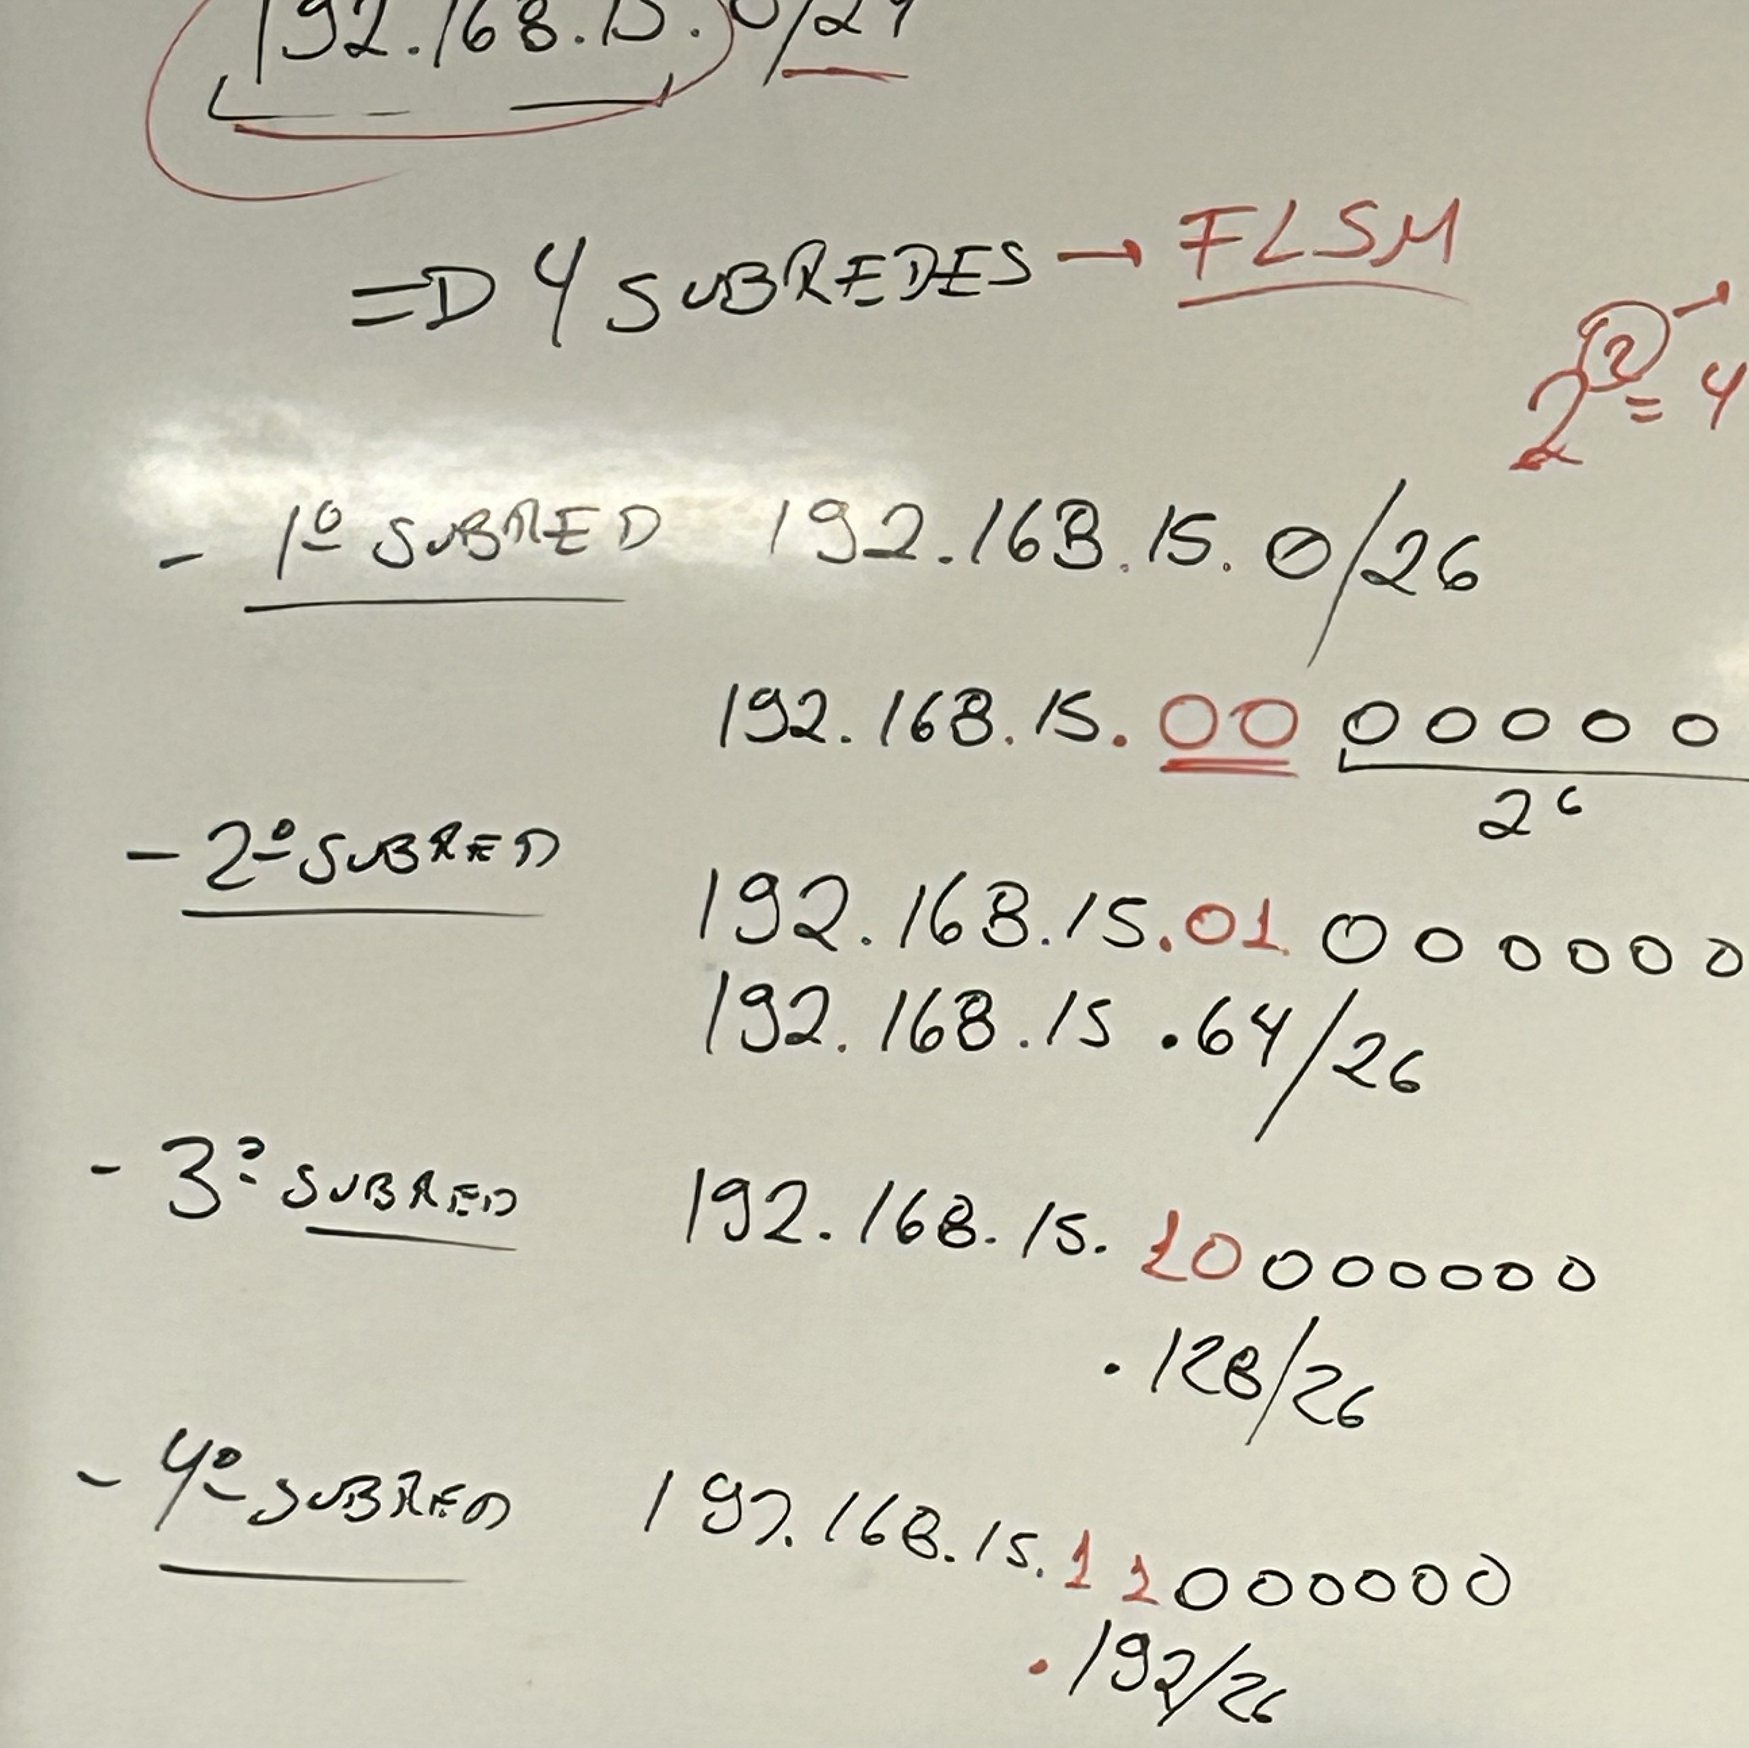 192.168.15.0/24
=D 4 SUBREDES → FLSM
2² = 4
- 1º SUBRED 192.168.15.0/26
192.168.15.00 00000
2⁶
- 2º SUBRED
192.168.15.01 000000
192.168.15.64/26
- 3º SUBRED 192.168.15.10000000
.128/26
- 4º SUBRED 192.168.15.11000000
.192/26